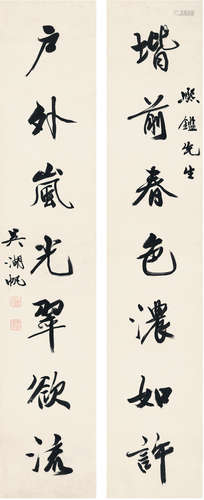 堦前春色濃如許
熙鑑先生
戶外嵐光翠欲流
吳湖帆